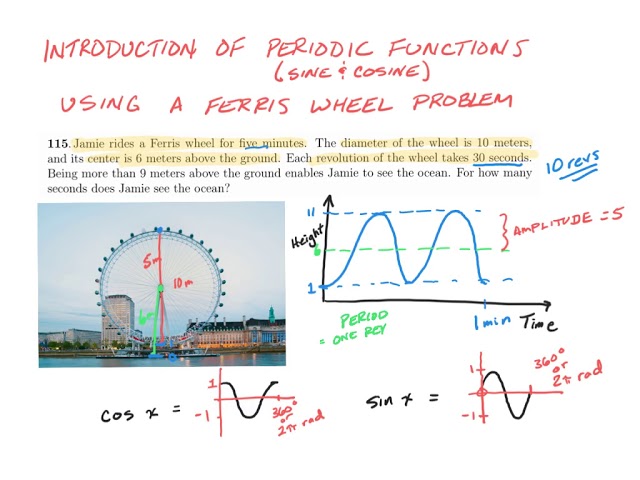 INTRODUCTION OF PERIODIC FUNCTIONS
(SINE & COSINE)
USING A FERRIS WHEEL PROBLEM
115. Jamie rides a Ferris wheel for five minutes. The diameter of the wheel is 10 meters,
and its center is 6 meters above the ground. Each revolution of the wheel takes 30 seconds.
Being more than 9 meters above the ground enables Jamie to see the ocean. For how many
seconds does Jamie see the ocean?
10 revs
5m
10m
6m
11
Height
6
1
AMPLITUDE = 5
PERIOD
= ONE REV
1 min
Time
cos x =
1
-1
360°
or
2π rad
sin x =
1
-1
360°
or
2π rad